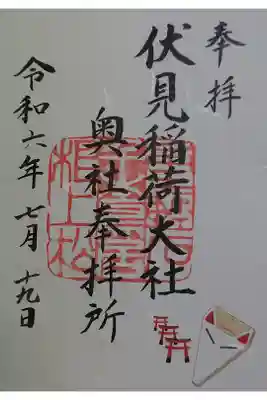 奉拝
伏見稲荷大社
奥社奉拝所
令和六年七月十九日